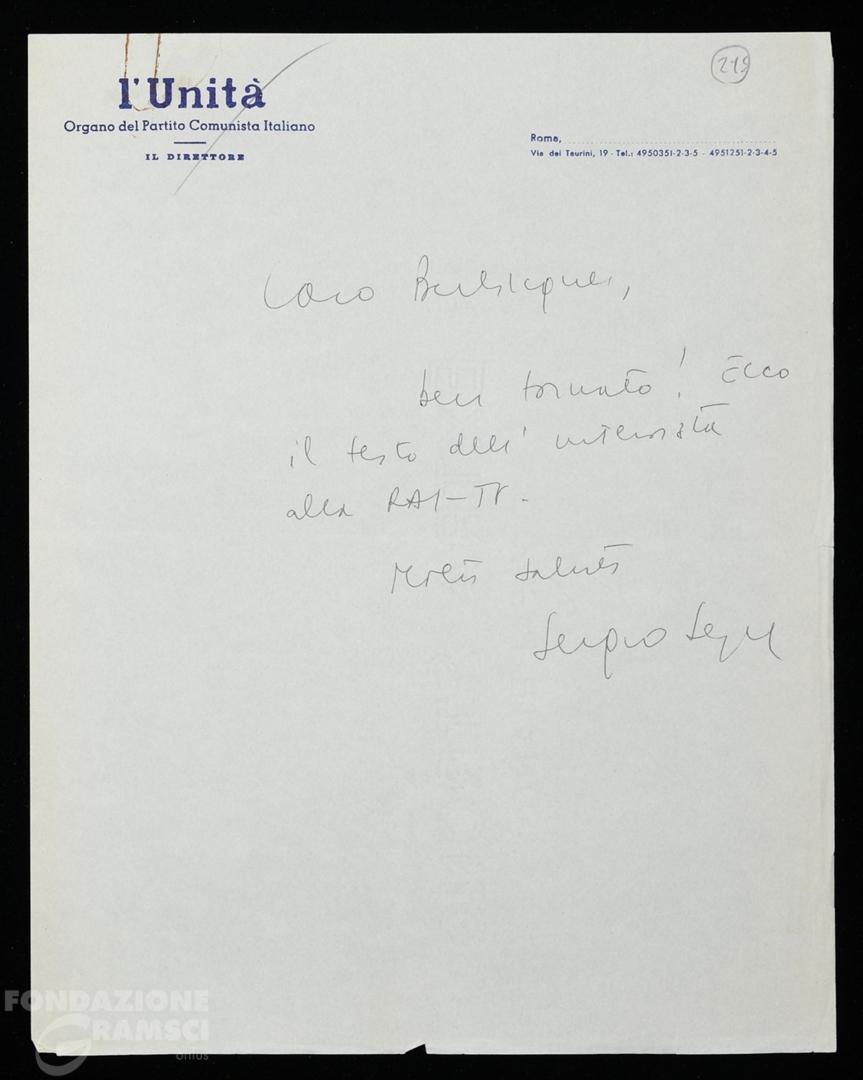 219
l'Unità
Organo del Partito Comunista Italiano
IL DIRETTORE
Roma,
Via dei Taurini, 19 - Tel.: 4950351-2-3-5 - 4951251-2-3-4-5
Caro Berlinguer,
ben tornato! Ecco
il testo dell'intervista
alla RAI-TV.
Molti saluti
Sergio Segre
FONDAZIONE
GRAMSCI
onlus